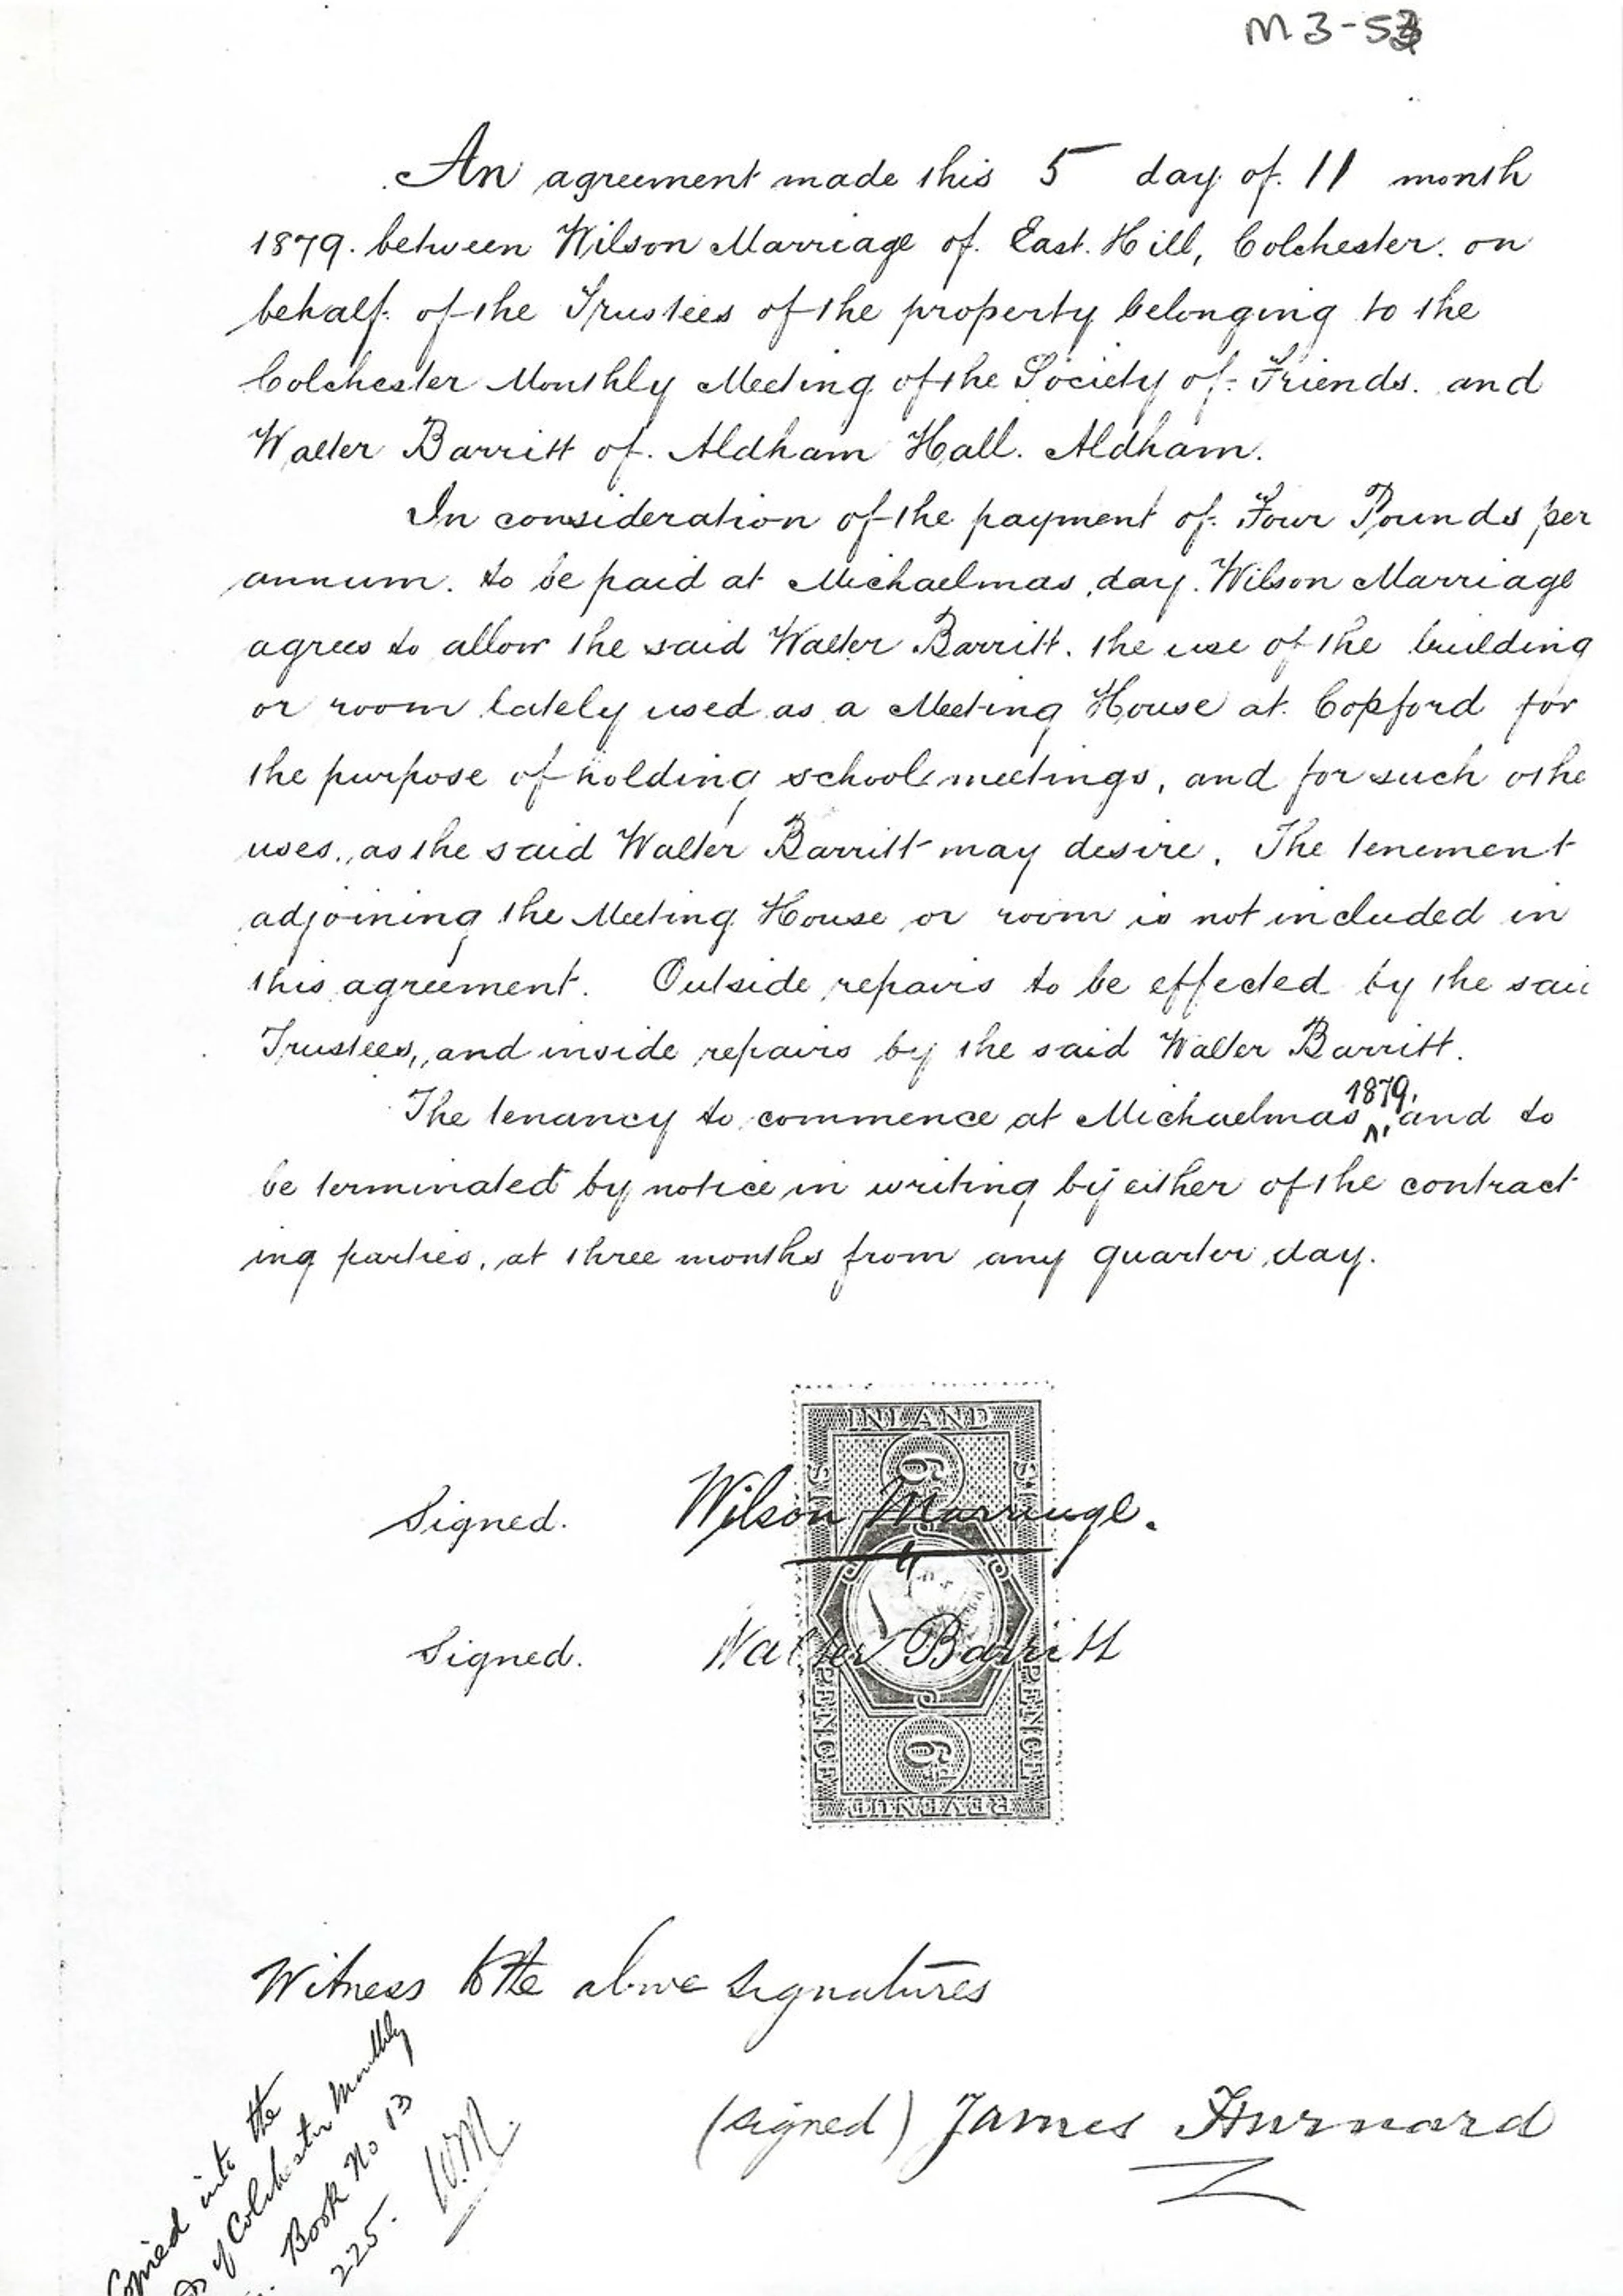 M 3-53
An agreement made this 5 day of 11 month
1879. between Wilson Marriage of. East. Hill, Colchester. on
behalf. of the Trustees of the property belonging to the
Colchester Monthly Meeting of the Society of Friends. and
Walter Barritt of. Aldham Hall. Aldham.
In consideration of the payment of Four Pounds per
annum. to be paid at Michaelmas day. Wilson Marriage
agrees to allow the said Walter Barritt. the use of the building
or room lately used as a Meeting House at Copford for
the purpose of holding school meetings, and for such othe
uses, as the said Walter Barritt may desire. The tenement
adjoining the Meeting House or room is not included in
this agreement. Outside repairs to be effected by the sai
Trustees, and inside repairs by the said Walter Barritt.
The tenancy to commence at Michaelmas 1879, and to
be terminated by notice in writing by either of the contract
ing parties, at three months from any quarter day.
INLAND
6
Signed. Wilson Marriage.
Signed. Walter Barritt
PENCE PENCE
6D
REVENUE
Witness to the above signatures
(signed) James Hurnard
Copied into the
of Colchester Monthly
Book No 13
225. W.M.